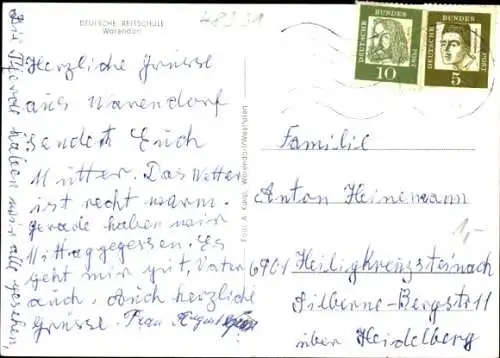 DEUTSCHE REITSCHULE
Warendorf
48231
Herzliche Grüsse
aus Warendorf
sendet Euch
Mutter. Das Wetter
ist recht warm.
gerade haben wir
Mittaggegessen. Es
geht mir gut, Vater
auch. Auch herzliche
Grüsse. Frau
Die Pferde haben wir alle gesehen,
Foto: A. Warendorf/Westfalen
DEUTSCHE BUNDESPOST
10
DEUTSCHE BUNDESPOST
5
Familie
Anton Heinemann
6901 Heiligkreuzsteinach
Silberne-Bergstr 11
über Heidelberg
1,-